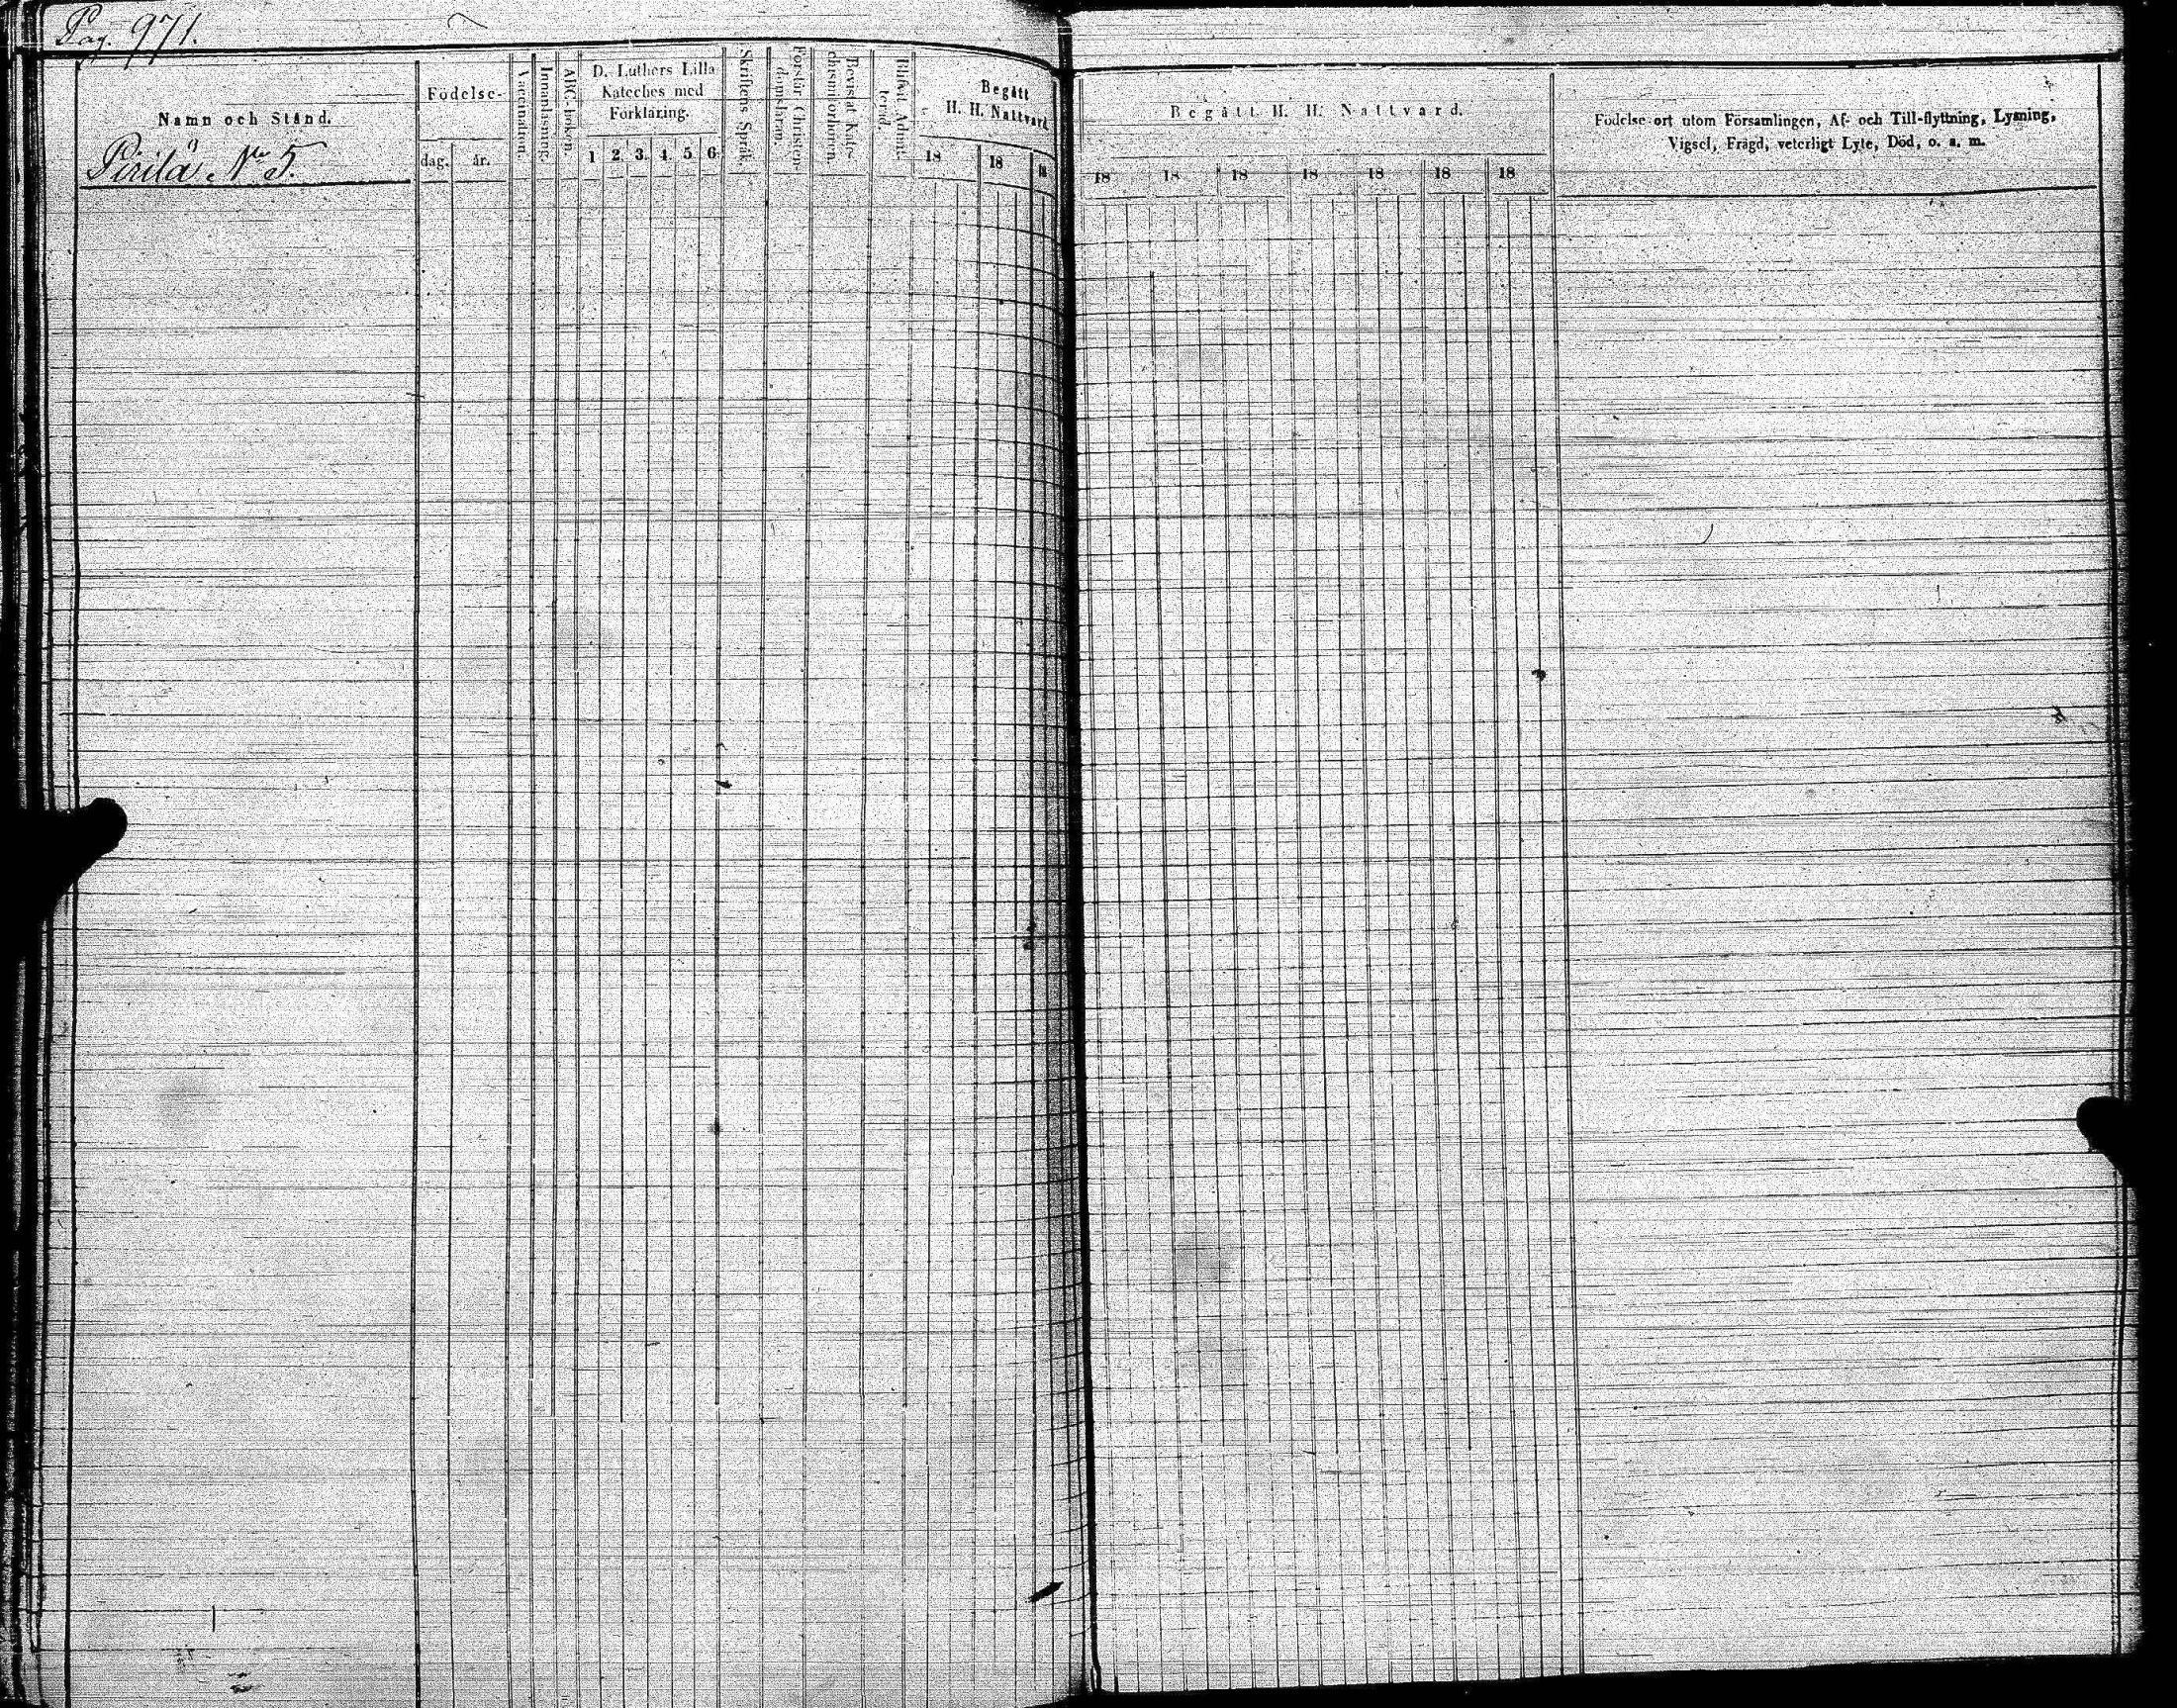 Pag. 971.
Namn och Stånd.
Pirilä N:o 5.
Födelse-
dag. år.
Vaccination.
Innanläsning.
ABC-boken.
D. Luthers Lilla
Kateches med
Förklaring.
1 2. 3. 4. 5 6
Skriftens Språk.
Förstår Christen-
domsläran.
Bevistat Kate-
chismiförhören.
Blifvit Admit-
terad.
Begått
H. H. Nattvard
18 18 18
Begått H. H. Nattvard.
18 18 18 18 18 18 18
Födelse-ort utom Församlingen, Af- och Till-flyttning, Lysning,
Vigsel, Frägd, veterligt Lyte, Död, o. s. m.